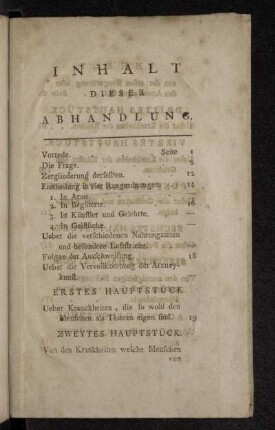 INHALT
DIESER
ABHANDLUNG.
Vorrede. Seite 1
Die Frage.
Zergliederung derselben. 12
Eintheilung in vier Rangordnungen 14
1. In Arme.
2. In Begüterte. 16
3. In Künstler und Gelehrte. —
4. In Geistliche. —
Ueber die verschiedenen Nahrungsarten
und besondere
Folgen der Ausschweifung. 18
Ueber die Vervollkommung der Arzney-
kunst.
ERSTES HAUPTSTÜCK
Ueber Kranckheiten, die so wohl den
Menschen als Thieren eigen sind. 19
ZWEYTES HAUPTSTÜCK.
Von den Krankheiten welche Menschen
von